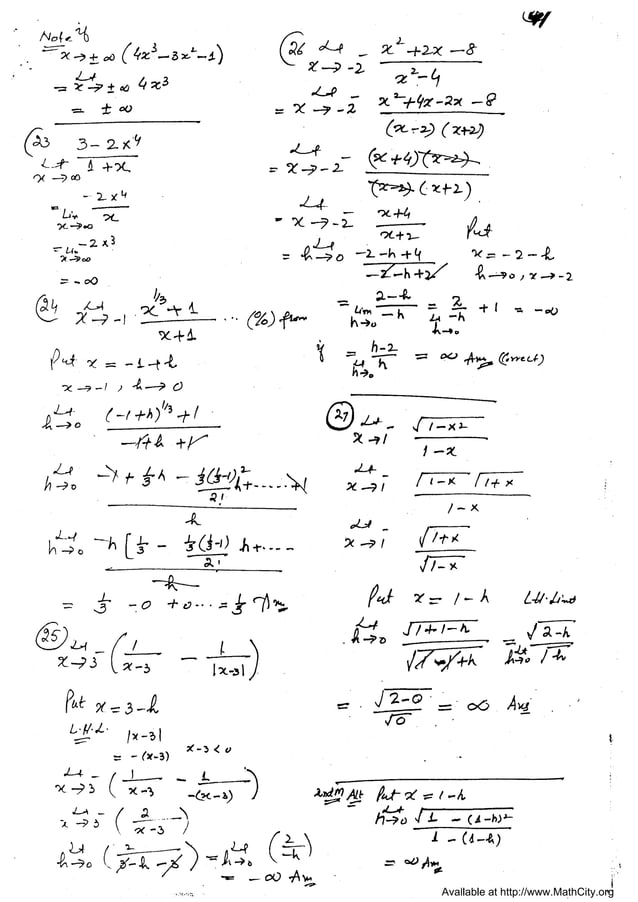 Note if
x→±∞ (4x³−3x²−1)
= Lt x→±∞ 4x³
= ±∞
(23 Lt x→∞ (3−2x⁴)/(1+x)
= Lim x→∞ −2x⁴/x
= Lim x→∞ −2x³
= −∞
(24 Lt x→−1 (x^{1/3}+1)/(x+1) ... (%) from
Put x = −1+h
x→−1, h→0
Lt h→0 ((−1+h)^{1/3}+1)/(−1+h+1)
Lt h→0 (−1 + ⅓h − (⅓(⅓−1)/2!)² h+......+1)/h
Lt h→0 −h[⅓ − (⅓(⅓−1)/2!) h+----/h
= ⅓ −0 +0... = ⅓ Ans
(25) Lt x→3⁻ (1/(x−3) − 1/|x−3|)
Put x=3−h
L.H.L. |x−3|
= −(x−3) x−3<0
Lt x→3⁻ (1/(x−3) − 1/−(x−3))
Lt x→3⁻ (2/(x−3))
Lt h→0 (2/(3−h−3)) = Lt h→0 (2/−h)
= −∞ Ans
(26 Lt x→−2⁻ (x²+2x−8)/(x²−4)
= Lt x→−2⁻ (x²+4x−2x−8)/((x−2)(x+2))
= Lt x→−2⁻ ((x+4)(x−2))/((x−2)(x+2))
= Lt x→−2⁻ (x+4)/(x+2) Put
= Lt h→0 (−2−h+4)/(−2−h+2) x=−2−h
h→0, x→−2
= Lim h→0 (2−h)/−h = Lt h→0 2/−h +1 = −∞
if = Lt h→0 (h−2)/h = ∞ Ans (Correct)
(27) Lt x→1⁻ √(1−x²)/(1−x)
Lt x→1⁻ (√(1−x) √(1+x))/(1−x)
Lt x→1⁻ √(1+x)/√(1−x)
Put x=1−h L.H.Limit
Lt h→0 √(1+1−h)/√(1−1+h) = Lt h→0 √(2−h)/√h
= √(2−0)/√0 = ∞ Ans
2nd M Alt Put x=1−h
Lt h→0 √(1−(1−h)²)/(1−(1−h))
= ∞ Ans
Available at http://www.MathCity.org